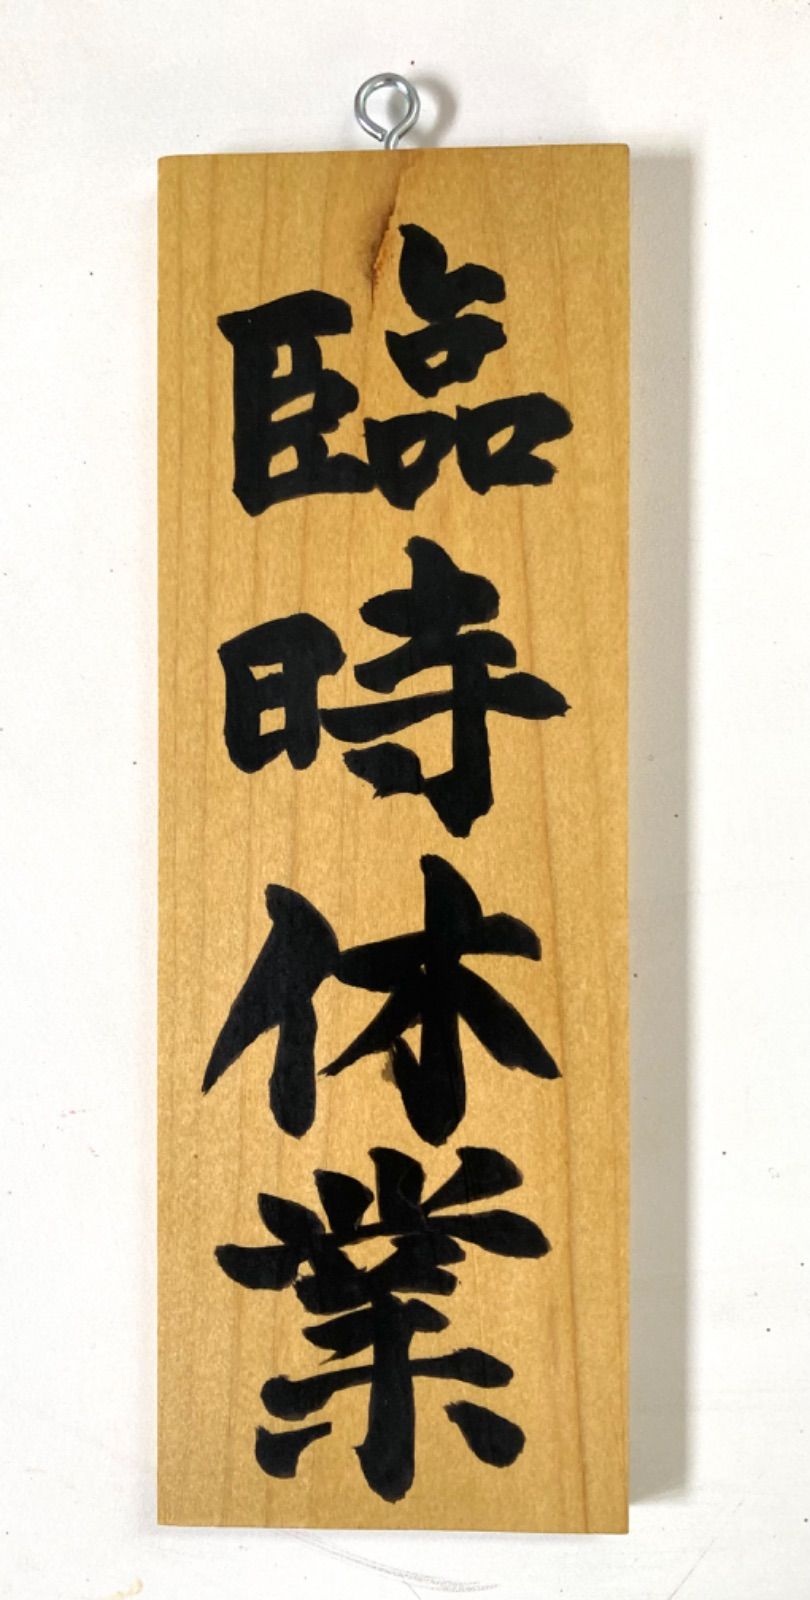 臨時休業